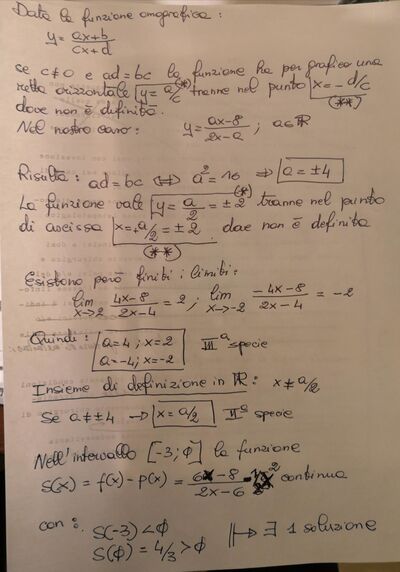 Data la funzione omografica:
y = ax+b / cx+d
se c≠0 e ad=bc la funzione ha per grafico una
retta orizzontale y = a/c (*) tranne nel punto x = -d/c (**)
dove non è definita.
Nel nostro caso: y = ax-8 / 2x-a ; a∈ℝ
Risulta: ad=bc ⟺ a²=16 ⇒ a=±4
La funzione vale y = a/2 = ±2 (*) tranne nel punto
di ascissa x=+a/2 = ±2 (**) dove non è definita
Esistono però finiti i limiti:
lim x→2 4x-8 / 2x-4 = 2 ; lim x→-2 -4x-8 / 2x-4 = -2
Quindi: a=4; x=2
a=-4; x=-2 IIIª specie
Insieme di definizione in ℝ: x≠a/2
Se a≠±4 → x=a/2 IIª specie
Nell'intervallo [-3;ϕ] la funzione
S(x) = f(x)-p(x) = 6x-8 / 2x-6 continua
con: S(-3)<ϕ
S(ϕ)=4/3>ϕ ⊩→ ∃ 1 soluzione